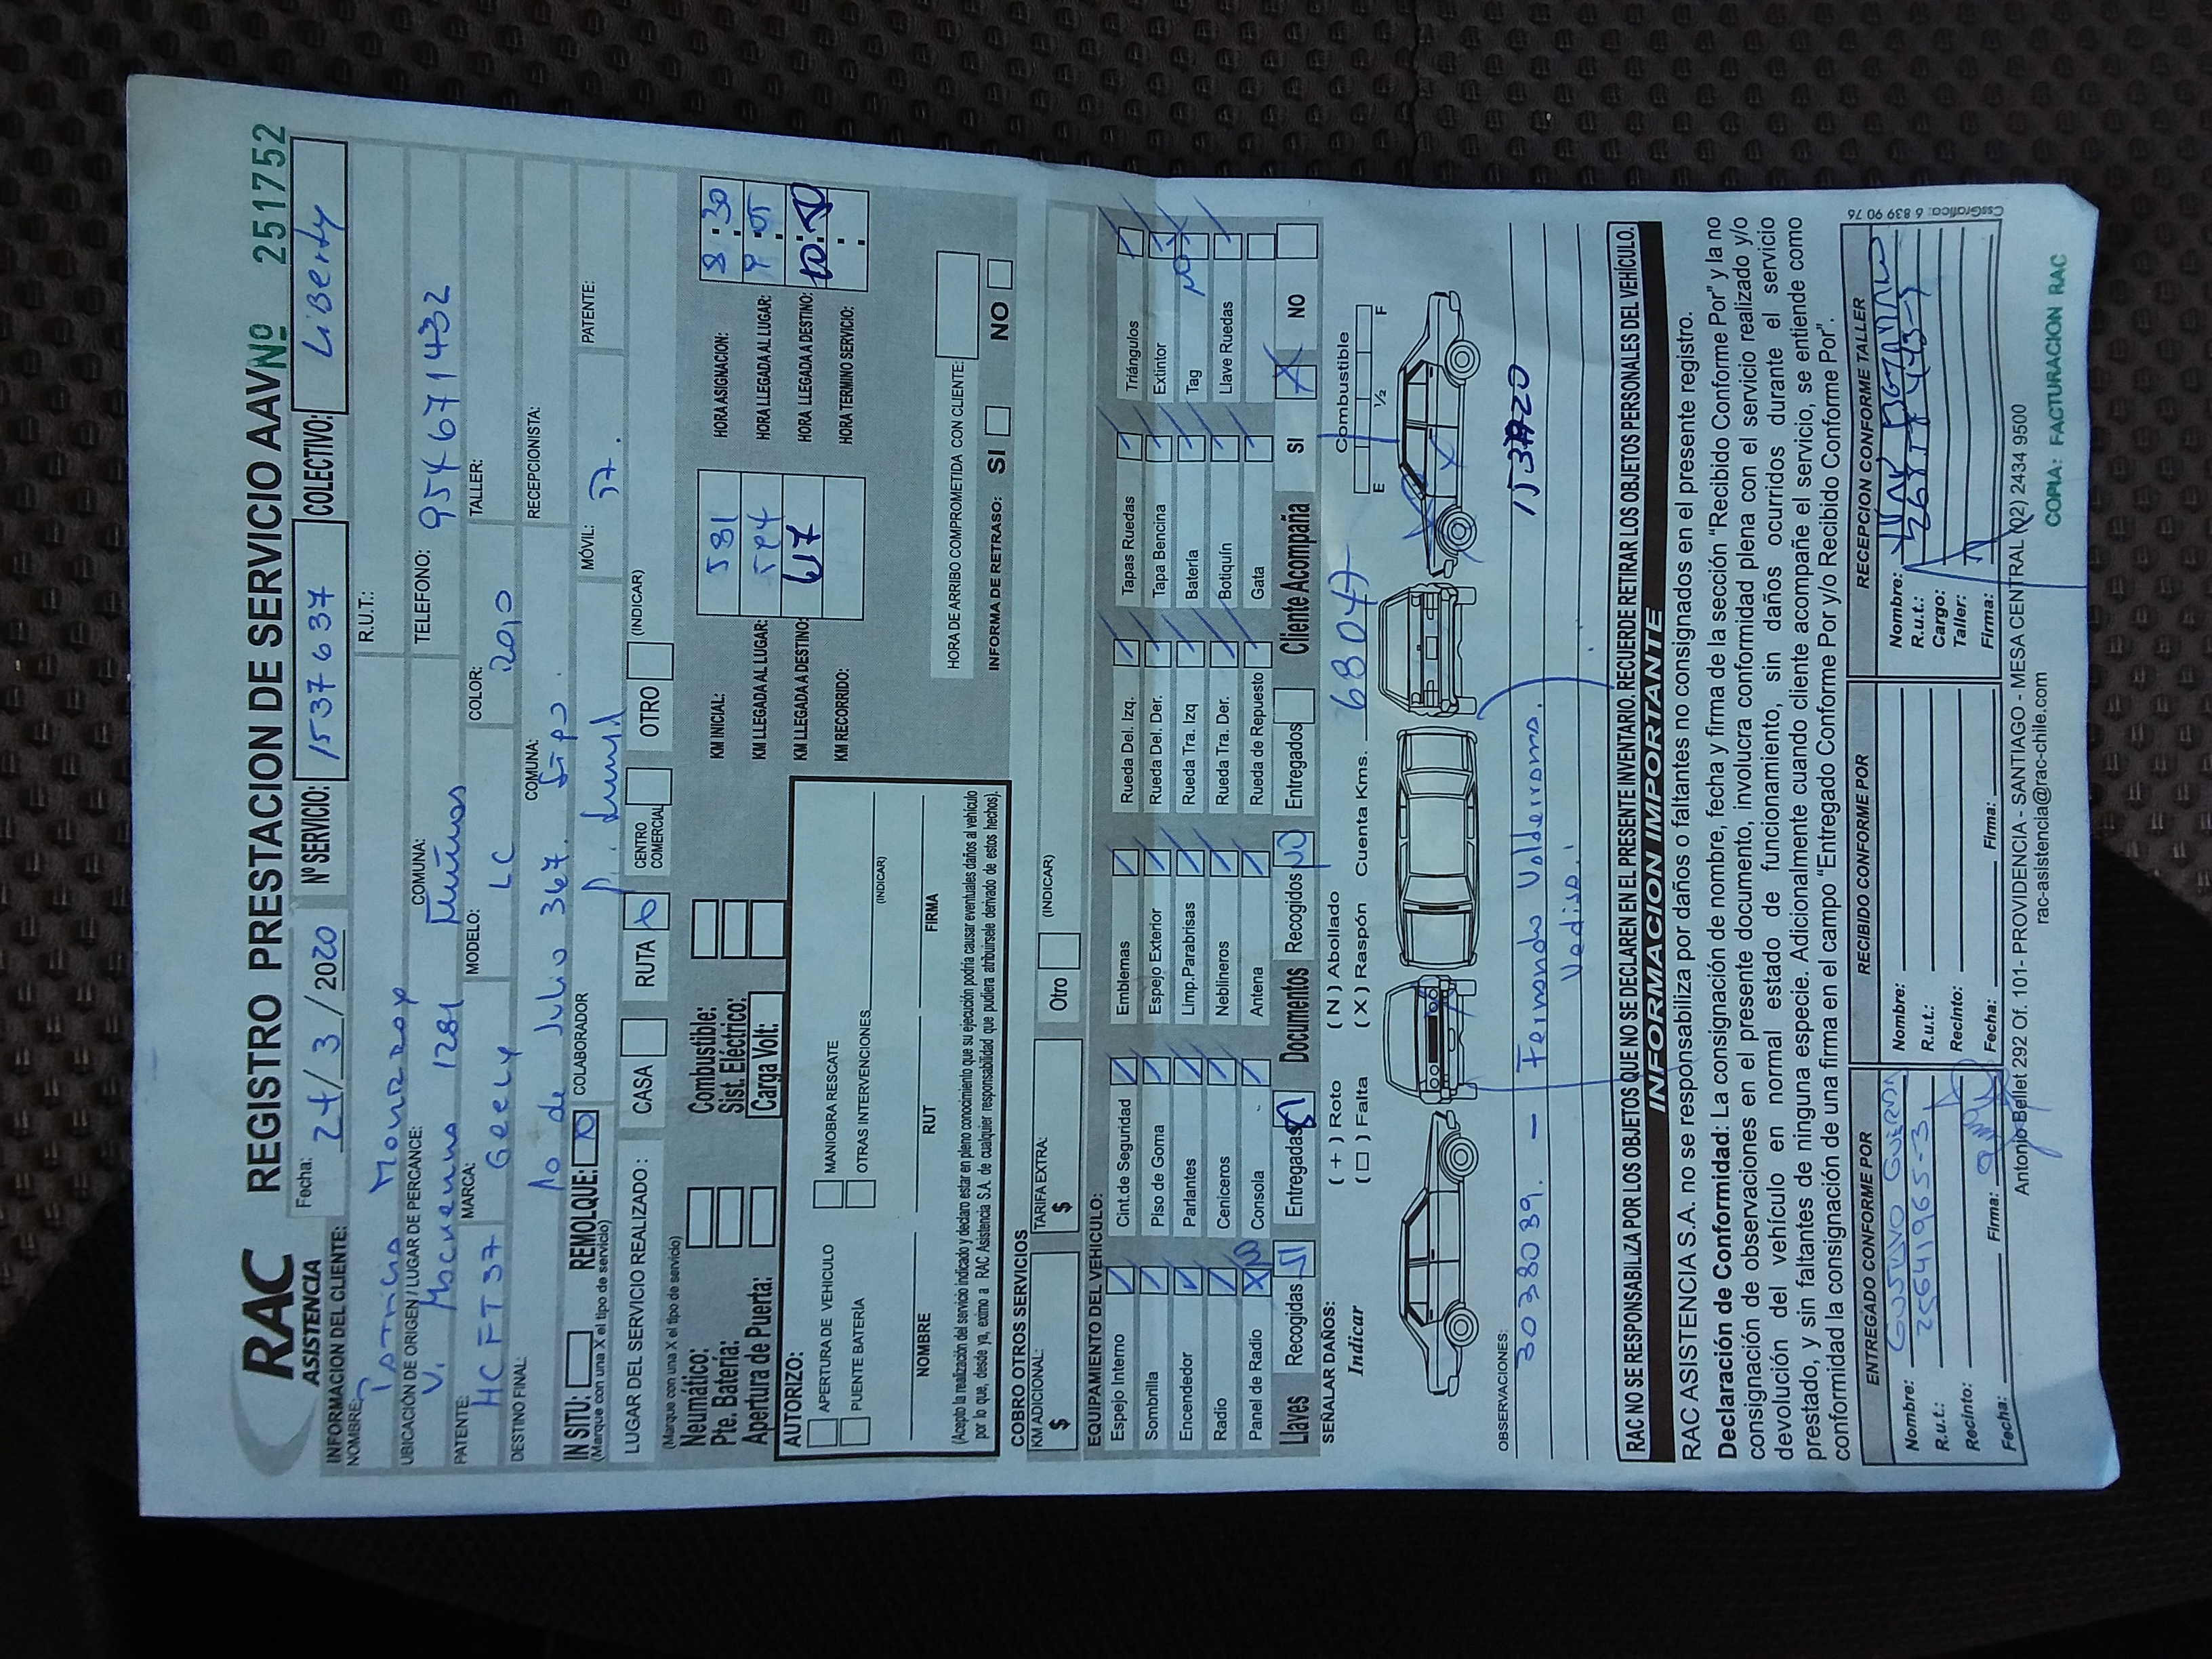 RAC
ASISTENCIA
REGISTRO PRESTACION DE SERVICIO AAV Nº 251752
INFORMACION DEL CLIENTE:
Fecha: 24/3/2020
Nº SERVICIO: 1537637
COLECTIVO: Liberty
NOMBRE: Patricio
R.U.T.:
UBICACIÓN DE ORIGEN / LUGAR DE PERCANCE: V. Mackenna 1281
COMUNA: Ñuñoa
TELEFONO: 954671432
PATENTE: HCFT37
MARCA: Geely
MODELO: LC
COLOR: 2010
TALLER:
DESTINO FINAL: 10 de Julio 367.
COMUNA: Stgo.
RECEPCIONISTA:
IN SITU:
REMOLQUE: X
COLABORADOR
MÓVIL: 37.
PATENTE:
(Marque con una X el tipo de servicio)
LUGAR DEL SERVICIO REALIZADO:
CASA
RUTA X
CENTRO COMERCIAL
OTRO
(INDICAR)
(Marque con una X el tipo de servicio)
Neumático:
Combustible:
Pte. Batería:
Sist. Eléctrico:
Apertura de Puerta:
Carga Volt:
KM INICIAL: 581
HORA ASIGNACION: 8:30
KM LLEGADA AL LUGAR:
HORA LLEGADA AL LUGAR: 9:05
KM LLEGADA A DESTINO: 617
HORA LLEGADA A DESTINO:
KM RECORRIDO:
HORA TERMINO SERVICIO:
AUTORIZO:
APERTURA DE VEHICULO
MANIOBRA RESCATE
PUENTE BATERÍA
OTRAS INTERVENCIONES
(INDICAR)
NOMBRE
RUT
FIRMA
(Acepto la realización del servicio indicado y declaro estar en pleno conocimiento que su ejecución podría causar eventuales daños al vehículo
por lo que, desde ya, eximo a RAC Asistencia S.A. de cualquier responsabilidad que pudiera atribuírsele derivado de estos hechos).
HORA DE ARRIBO COMPROMETIDA CON CLIENTE:
INFORMA DE RETRASO: SI NO
COBRO OTROS SERVICIOS
KM ADICIONAL:
$
TARIFA EXTRA:
$
Otro
(INDICAR)
EQUIPAMIENTO DEL VEHICULO:
Espejo Interno
Cint.de Seguridad
Emblemas
Rueda Del. Izq.
Tapas Ruedas
Triángulos
Sombrilla
Piso de Goma
Espejo Exterior
Rueda Del. Der.
Tapa Bencina
Extintor
Encendedor
Parlantes
Limp.Parabrisas
Rueda Tra. Izq
Batería
Tag NO
Radio
Ceniceros
Neblineros
Rueda Tra. Der.
Botiquín
Llave Ruedas
Panel de Radio NO
Consola
Antena
Rueda de Repuesto
Gata
Llaves Recogidas SI Entregadas SI Documentos Recogidos NO Entregados Cliente Acompaña SI X NO
SEÑALAR DAÑOS:
Indicar
( + ) Roto
( N ) Abollado
( □ ) Falta
( X ) Raspón
Cuenta Kms. 68047
Combustible
E ½ F
OBSERVACIONES:
30238039. - Fernando Valderrama.
RAC NO SE RESPONSABILIZA POR LOS OBJETOS QUE NO SE DECLAREN EN EL PRESENTE INVENTARIO. RECUERDE RETIRAR LOS OBJETOS PERSONALES DEL VEHÍCULO.
INFORMACION IMPORTANTE
RAC ASISTENCIA S.A. no se responsabiliza por daños o faltantes no consignados en el presente registro.
Declaración de Conformidad: La consignación de nombre, fecha y firma de la sección "Recibido Conforme Por" y la no
consignación de observaciones en el presente documento, involucra conformidad plena con el servicio realizado y/o
devolución del vehículo en normal estado de funcionamiento, sin daños ocurridos durante el servicio
prestado, y sin faltantes de ninguna especie. Adicionalmente cuando cliente acompañe el servicio, se entiende como
conformidad la consignación de una firma en el campo "Entregado Conforme Por y/o Recibido Conforme Por".
ENTREGADO CONFORME POR
Nombre: GUSTAVO
R.u.t.: 25641965-3
Recinto:
Fecha: Firma:
RECIBIDO CONFORME POR
Nombre:
R.u.t.:
Recinto:
Fecha: Firma:
RECEPCION CONFORME TALLER
Nombre:
R.u.t.:
Cargo:
Taller:
Firma:
CssGrafica: 6 839 90 76
Antonio Bellet 292 Of. 101- PROVIDENCIA - SANTIAGO - MESA CENTRAL (02) 2434 9500
rac-asistencia@rac-chile.com
COPIA: FACTURACION RAC